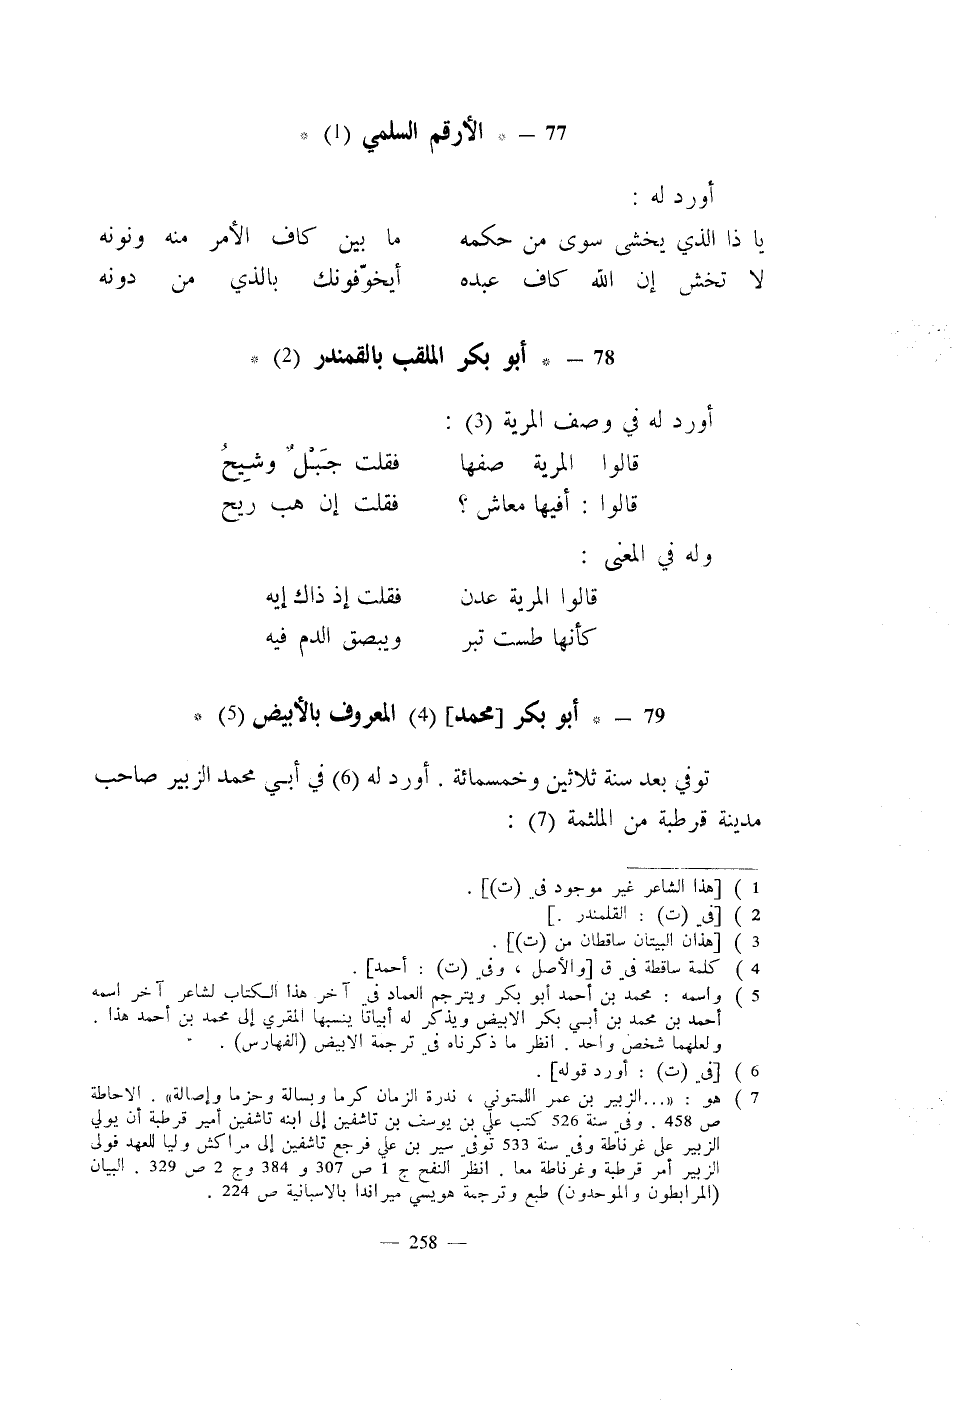 77 — * الأرقم السلمي (1) *
أورد له :
يا ذا الذي يخشى سوى من حكمه ما بين كاف الأمر منه ونونه
لا تخش إن الله كاف عبده أيخوّفونك بالذي من دونه
78 — * أبو بكر الملقب بالقمندر (2) *
أورد له في وصف المرية (3) :
قالوا المرية صفها فقلت جَبَلٌ وشِيحُ
قالوا : أفيها معاش ؟ فقلت إن هب ريح
وله في المعنى :
قالوا المرية عدن فقلت إذ ذاك إيه
كأنها طست تبر ويبصق الدم فيه
79 — * أبو بكر [محمد] (4) المعروف بالأبيض (5) *
توفي بعد سنة ثلاثين وخمسمائة . أورد له (6) في أبي محمد الزبير صاحب
مدينة قرطبة من الملثمة (7) :
1 ) [هذا الشاعر غير موجود في (ت)] .
2 ) [في (ت) : القلمندر .]
3 ) [هذان البيتان ساقطان من (ت)] .
4 ) كلمة ساقطة في ق [والأصل ، وفي (ت) : أحمد] .
5 ) واسمه : محمد بن أحمد أبو بكر ويترجم العماد في آخر هذا الكتاب لشاعر آخر اسمه
أحمد بن محمد بن أبي بكر الابيض ويذكر له أبياتا ينسبها المقري إلى محمد بن أحمد هذا .
ولعلهما شخص واحد . انظر ما ذكرناه في ترجمة الابيض (الفهارس) .
6 ) [في (ت) : أورد قوله] .
7 ) هو : «...الزبير بن عمر اللمتوني ، ندرة الزمان كرما وبسالة وحزما وإصالة» . الاحاطة
ص 458 . وفي سنة 526 كتب علي بن يوسف بن تاشفين إلى ابنه تاشفين أمير قرطبة أن يولي
الزبير على غرناطة وفي سنة 533 توفي سير بن علي فرجع تاشفين إلى مراكش وليا للعهد فولى
الزبير أمر قرطبة وغرناطة معا . انظر النفح ج 1 ص 307 و 384 وج 2 ص 329 . البيان
(المرابطون والموحدون) طبع وترجمة هويسي ميراندا بالاسبانية ص 224 .
— 258 —